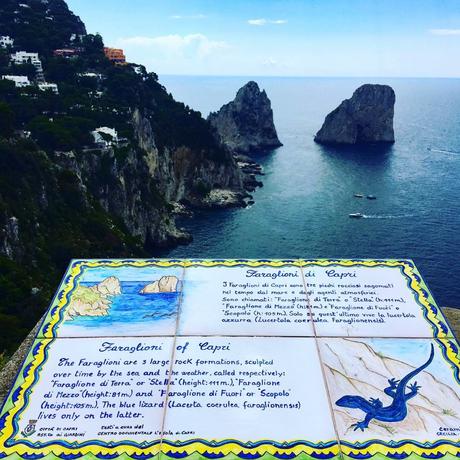 Faraglioni di Capri
I Faraglioni di Capri sono tre picchi rocciosi sagomati
nel tempo dal mare e dagli agenti atmosferici.
Sono chiamati: "Faraglione di Terra" o "Stella" (h:111m),
"Faraglione di Mezzo" (h:81m) and "Faraglione di Fuori" o
"Scopolo" (h:105m). Solo su quest'ultimo vive la lucertola
azzurra (Lucertola coerulea Faraglionensis).
Faraglioni of Capri
The Faraglioni are 3 large rock formations, sculpted
over time by the sea and the weather, called respectively:
"Faraglione di Terra" or "Stella" (height:111m), "Faraglione
di Mezzo" (height:81m) and "Faraglione di Fuori" or "Scopolo"
(height:105m). The blue lizard (Lacerta coerulea faraglionensis)
lives only on the latter.
CITTÀ DI CAPRI
ASS.TO AI GIARDINI
TESTI A CURA DEL
CENTRO DOCUMENTALE L'ISOLA DI CAPRI
CECILIA